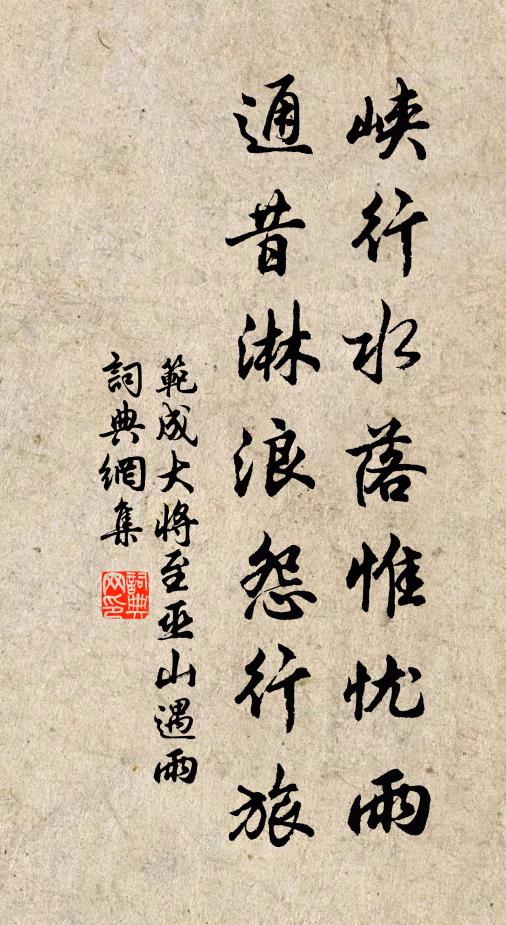 峡行水落惟忧雨
通昔淋浪怨行旅
範成大将至巫山遇雨
詞典網集
詞典网印